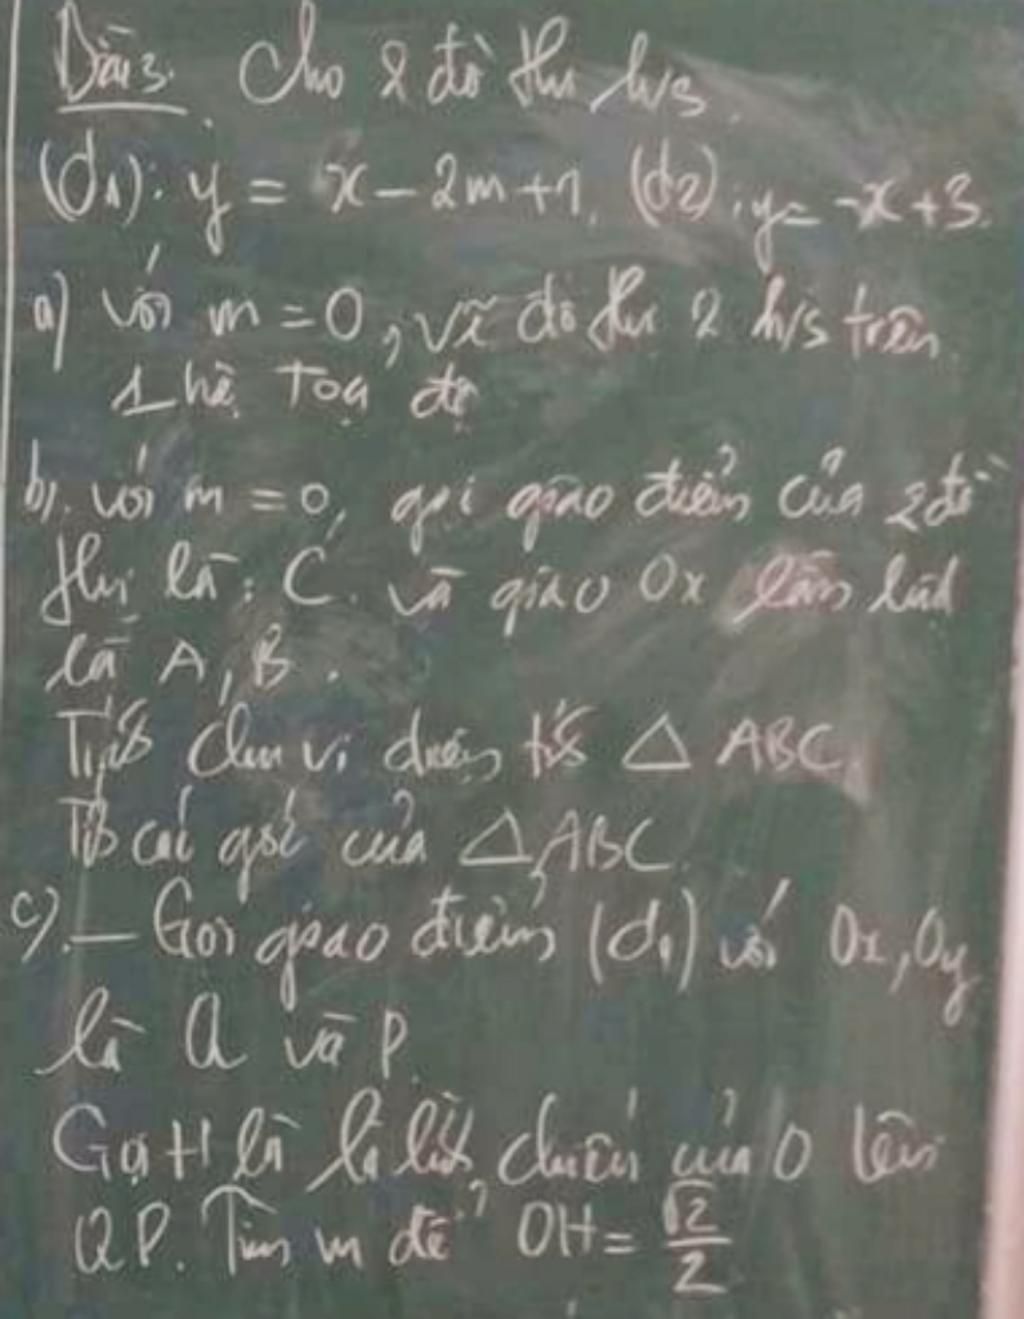 Bài 3. Cho 2 đồ thị h/s.
(d1): y = x - 2m + 1. (d2): y = -x + 3.
a) với m = 0, vẽ đồ thị 2 h/s trên
1 hệ toạ độ
b). với m = 0, gọi giao điểm của 2 đồ
thị là: C. và giao Ox lần lượt
là A, B.
Tính chu vi diện tích △ ABC.
Tính các góc của △ ABC.
c). - Gọi giao điểm (d1) với Ox, Oy
là Q và P.
Gọi H là hình chiếu của O lên
QP. Tìm m để OH = √2/2